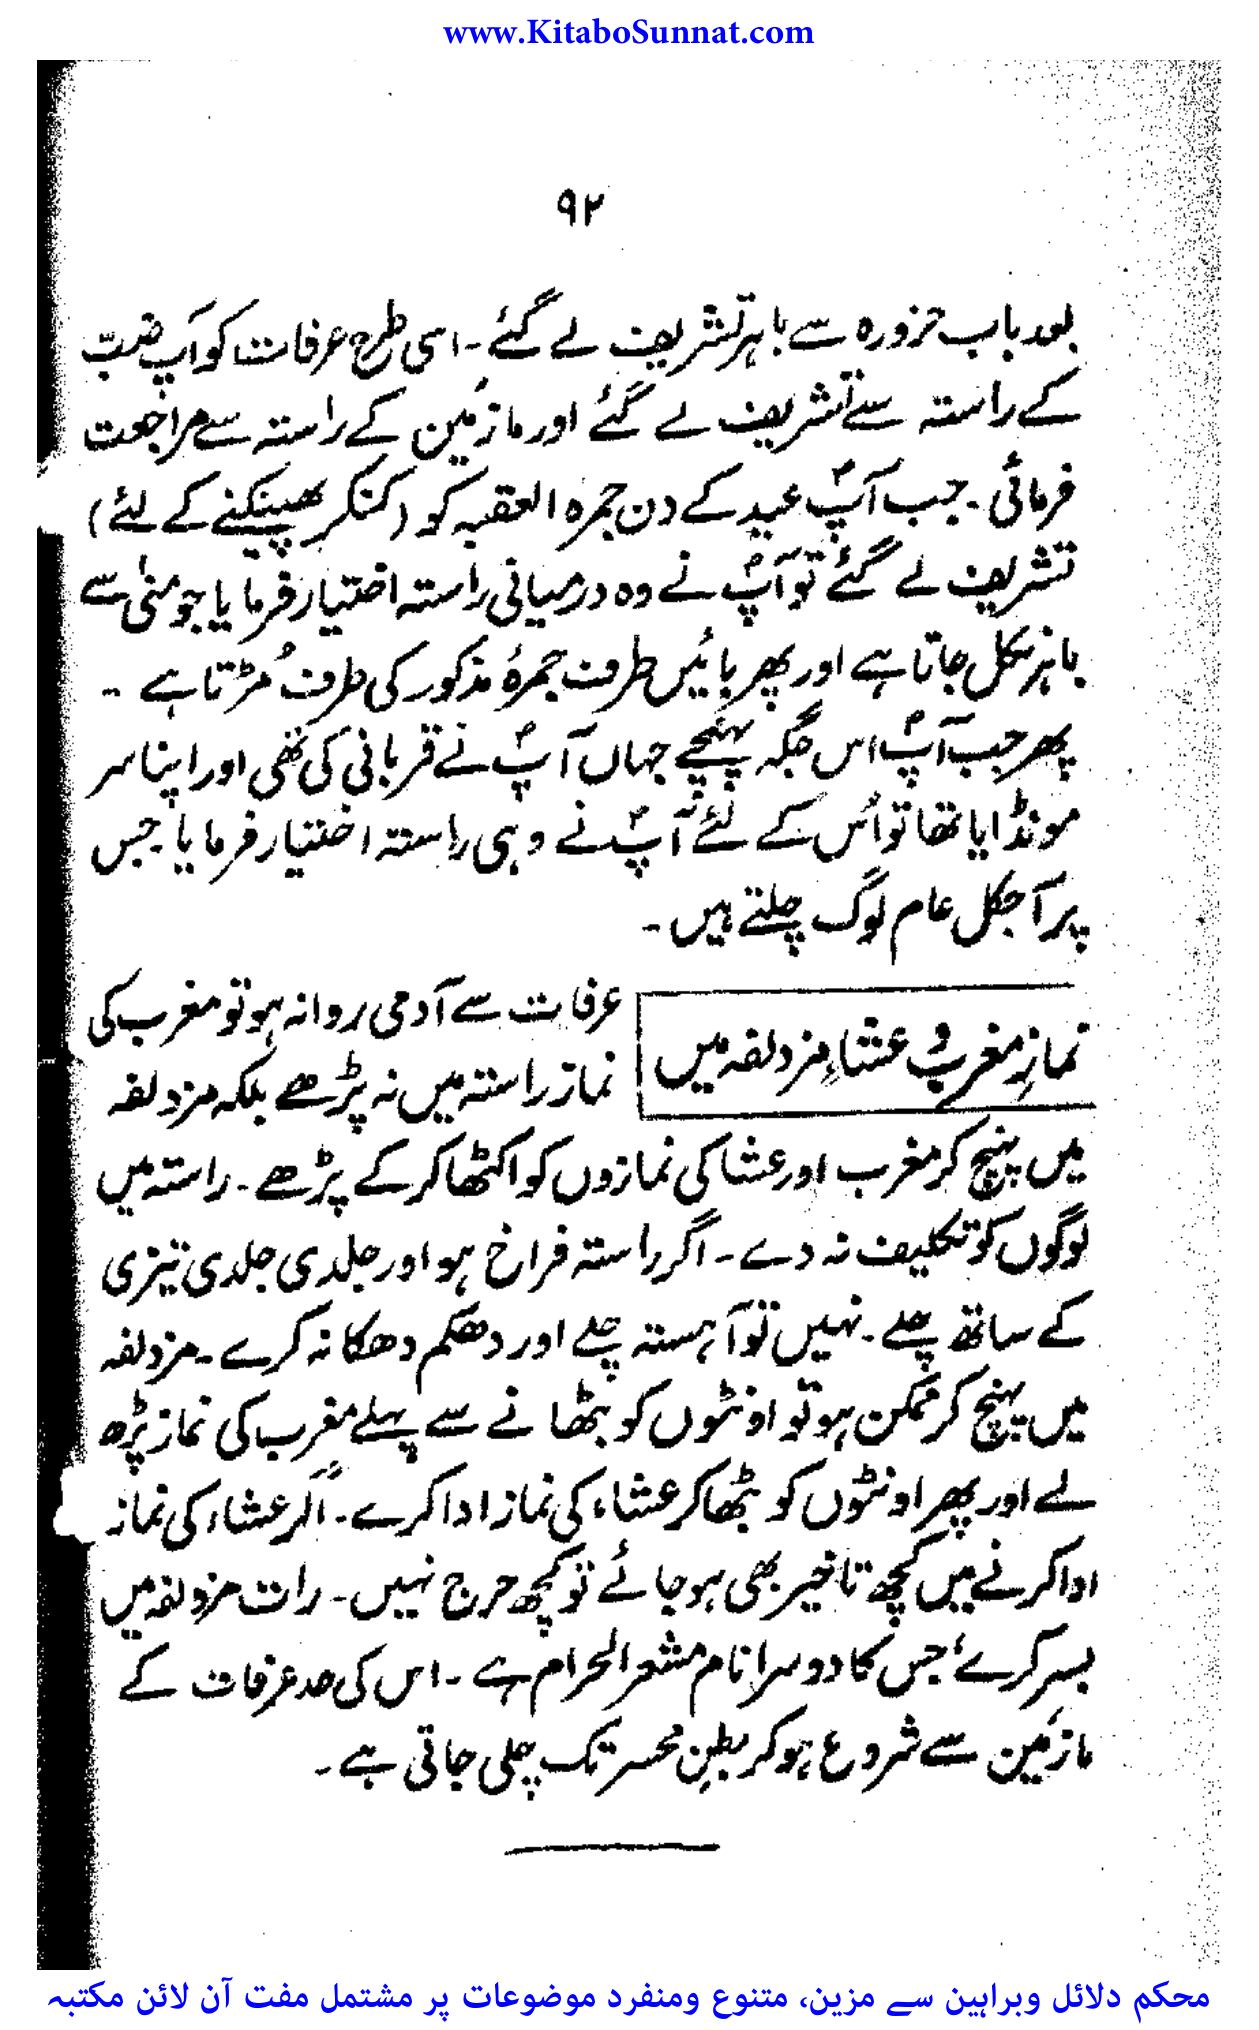 www.KitaboSunnat.com
۹۲
بعد باب حزورہ سے باہر تشریف لے گئے۔ اسی طرح عرفات کو آپ ضبّ
کے راستہ سے تشریف لے گئے اور مازمین کے راستہ سے مراجعت
فرمائی۔ جب آپؐ عید کے دن جمرہ العقبہ کو (کنکر پھینکنے کے لئے)
تشریف لے گئے تو آپؐ نے وہ درمیانی راستہ اختیار فرمایا جو منیٰ سے
باہر نکل جاتا ہے اور پھر بائیں طرف جمرۂ مذکور کی طرف مُڑتا ہے۔
پھر جب آپؐ اس جگہ پہنچے جہاں آپؐ نے قربانی کی تھی اور اپنا سر
مونڈایا تھا تو اُس کے لئے آپؐ نے وہی راستہ اختیار فرمایا جس
پر آجکل عام لوگ چلتے ہیں۔
نمازِ مغرب و عشاءِ مزدلفہ میں
عرفات سے آدمی روانہ ہو تو مغرب کی
نماز راستہ میں نہ پڑھے بلکہ مزدلفہ
میں پہنچ کر مغرب اور عشا کی نمازوں کو اکٹھا کر کے پڑھے۔ راستہ میں
لوگوں کو تکلیف نہ دے۔ اگر راستہ فراخ ہو اور جلدی جلدی تیزی
کے ساتھ چلے۔ نہیں تو آہستہ چلے اور دھکم دھکا نہ کرے۔ مزدلفہ
میں پہنچ کر ممکن ہو تو اونٹوں کو بٹھانے سے پہلے مغرب کی نماز پڑھ
لے اور پھر اونٹوں کو بٹھا کر عشاء کی نماز ادا کرے۔ اگر عشاء کی نماز
ادا کرنے میں کچھ تاخیر بھی ہو جائے تو کچھ حرج نہیں۔ رات مزدلفہ میں
بسر کرے، جس کا دوسرا نام مشعر الحرام ہے۔ اس کی حد عرفات کے
مازمین سے شروع ہو کر بطنِ محسر تک چلی جاتی ہے۔
محکم دلائل وبراہین سے مزین، متنوع ومنفرد موضوعات پر مشتمل مفت آن لائن مکتبہ